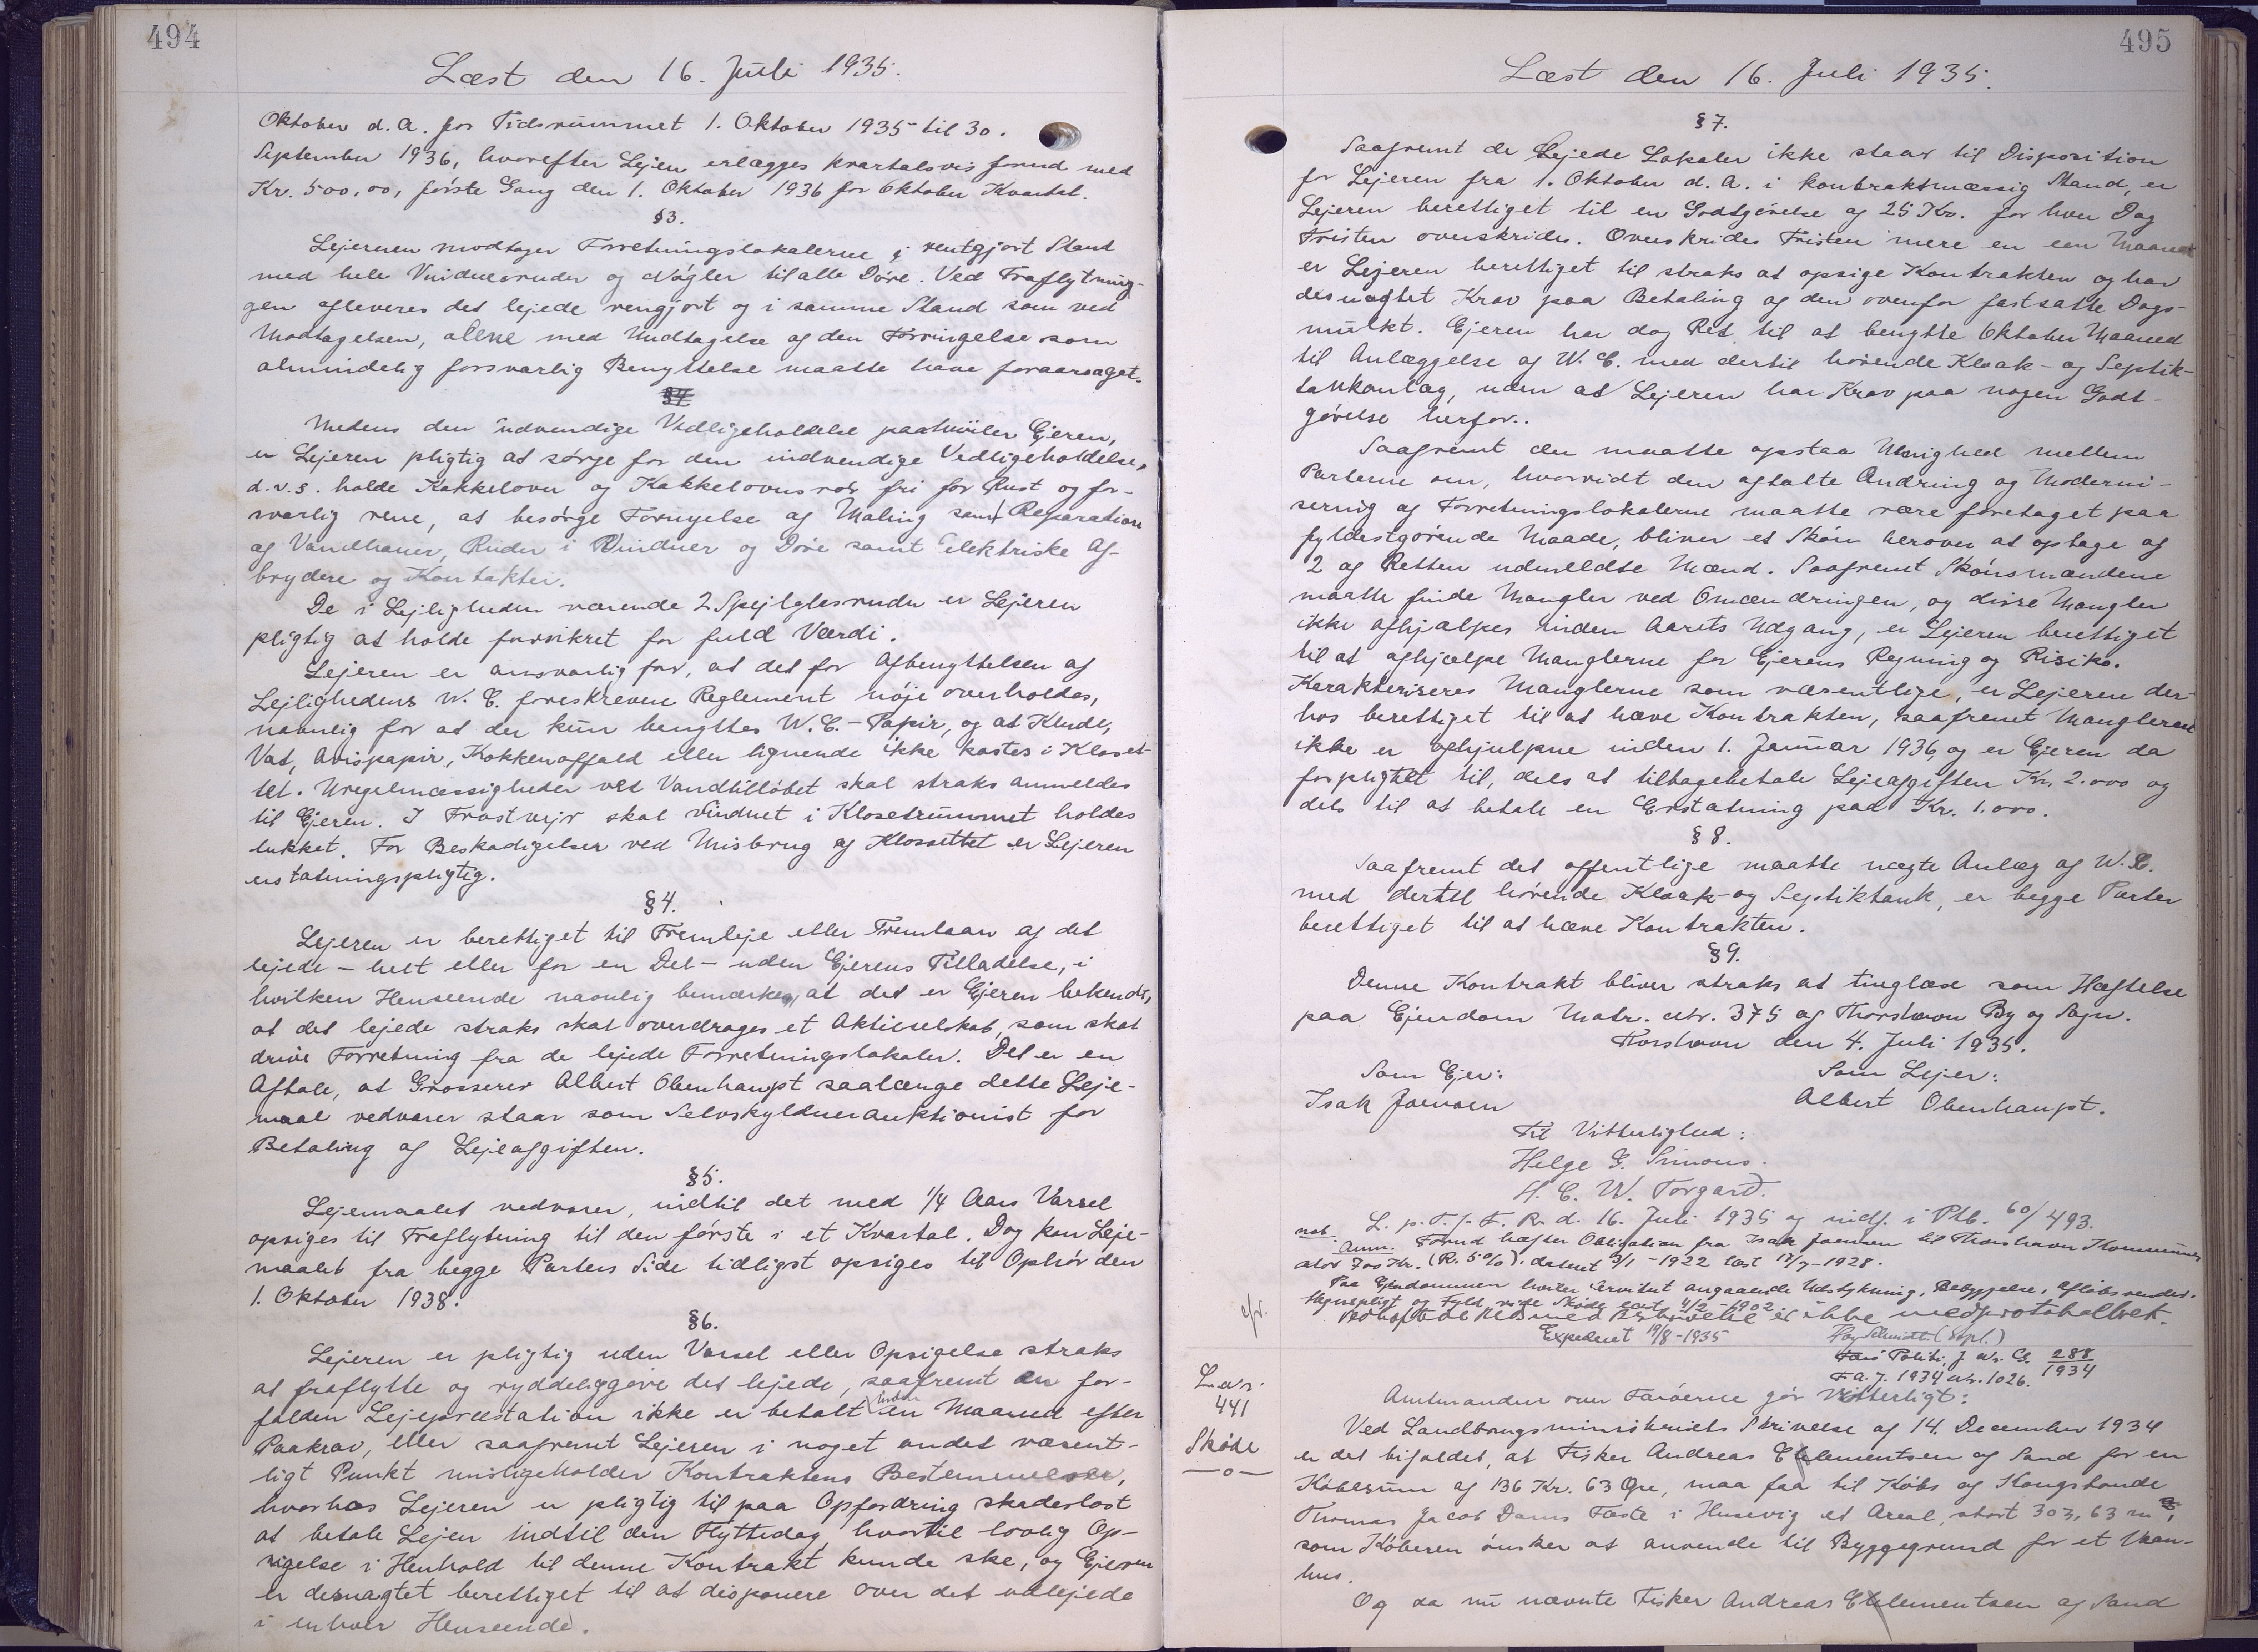 494
Læst den 16. Juli 1935.
Oktober d.A. for Tidsrummet 1. Oktober 1935 til 30.
September 1936, hvorefter Lejen erlægges kvartalsvis forud med
Kr. 500,00, første Gang den 1. Oktober 1936 for Oktober Kvartal.
§3.
Lejeren modtager Forretningslokalerne i rentgjort Stand
med hele Vinduesruder og Nøgler til alle Døre. Ved Fraflytnin-
gen afleveres det lejede rengjort og i samme Stand som ved
Modtagelsen, alene med Undtagelse af den Forringelse som
almindelig forsvarlig Benyttelse maatte have foraarsaget.
§4
Medens den udvendige Vedligeholdelse paahviler Ejeren,
er Lejeren pligtig at sørge for den indvendige Vedligeholdelse,
d.v.s. holde Kakkelovn og Kakkelovnsrør fri for Rust og for-
svarlig rene, at besørge Fornyelse af Maling samt Reparation
af Vandhaner, Ruder i Vinduer og Døre samt elektriske Af-
brydere og Kontakter.
De i Lejligheden værende 2 Spejlglasruder er Lejeren
pligtig at holde forsikret for fuld Værdi.
Lejeren er ansvarlig for, at det for Afbenyttelsen af
Lejlighedens W.C. foreskrevne Reglement nøje overholdes,
navnlig for at der kun benyttes W.C.-Papir, og at Klude,
Vat, Avispapir, Køkkenaffald eller lignende ikke kastes i Kloset-
tet. Uregelmæssigheder ved Vandtilløbet skal straks anmeldes
til Ejeren. I Frostvejr skal Vinduet i Klosetrummet holdes
lukket. For Beskadigelser ved Misbrug af Klossettet er Lejeren
erstatningspligtig.
§4.
Lejeren er berettiget til Fremleje eller Fremlaan af det
lejede - helt eller for en Del - uden Ejerens Tilladelse, i
hvilken Henseende navnlig bemærkes, at det er Ejeren bekendt,
at det lejede straks skal overdrages et Aktieselskab, som skal
drive Forretning fra de lejede Forretningslokaler. Det er en
Aftale, at Grosserer Albert Obenhaupt saalænge dette Leje-
maal vedvarer staar som Selvskyldnerauktionist for
Betaling af Lejeafgiften.
§5.
Lejemaalet vedvarer, indtil det med 1/4 Aars Varsel
opsiges til Fraflytning til den første i et Kvartal. Dog kan Leje-
maalet fra begge Parters Side tidligst opsiges til Ophør den
1. Oktober 1938.
§6.
Lejeren er pligtig uden Varsel eller Opsigelse straks
at fraflytte og ryddeliggøre det lejede, saafremt en for-
falden Lejepræstation ikke er betalt inden en Maaned efter
Paakrav, eller saafremt Lejeren i noget andet væsent-
ligt Punkt misligeholder Kontraktens Bestemmelser,
hvorhos Lejeren er pligtig til paa Opfordring skadesløst
at betale Lejen indtil den Flyttedag, hvortil lovlig Op-
sigelse i Henhold til denne Kontrakt kunde ske, og Ejeren
er desuagtet berettiget til at disponere over det udlejede
i enhver Henseende.
495
Læst den 16. Juli 1935.
§7.
Saafremt de lejede Lokaler ikke staar til Disposition
for Lejeren fra 1. Oktober d.A. i kontraktmæssig Stand, er
Lejeren berettiget til en Godtgørelse af 25 Kr. for hver Dag
Fristen overskrides. Overskrides Fristen mere en een Maaned
er Lejeren berettiget til straks at opsige Kontrakten og har
desuagtet Krav paa Betaling af den ovenfor fastsatte Dags-
mulkt. Ejeren har dog Ret til at benytte Oktober Maaned
til Anlæggelse af W.C. med dertil hørende Kloak- og Septik-
tankanlæg, uden at Lejeren har Krav paa nogen Godt-
gørelse herfor..
Saafremt der maatte opstaa Uenighed mellem
Parterne om, hvorvidt den aftalte Ændring og Moderni-
sering af Forretningslokalerne maatte være foretaget paa
fyldestgørende Maade, bliver et Skøn herover at optage af
2 af Retten udmeldte Mænd. Saafremt Skønsmændene
maatte finde Mangler ved Omændringen, og disse Mangler
ikke afhjælpes inden Aarets Udgang, er Lejeren berettiget
til at afhjælpe Manglerne for Ejerens Regning og Risiko.
Karakteriseres Manglerne som væsentlige, er Lejeren der-
hos berettiget til at hæve Kontrakten, saafremt Manglerne
ikke er afhjulpne inden 1. Januar 1936, og er Ejeren da
forpligtet til, dels at tilbagebetale Lejeafgiften Kr. 2.000 og
dels til at betale en Erstatning paa Kr. 1.000.
§8.
Saafremt det offentlige maatte nægte Anlæg af W.C.
med dertil hørende Kloak- og Septiktank, er begge Parter
berettiget til at hæve Kontrakten.
§9.
Denne Kontrakt bliver straks at tinglæse som Hæftelse
paa Ejendom Matr. Nr. 375 af Thorshavn By og Sogn.
Thorshavn den 4. Juli 1935.
Som Ejer: Som Lejer:
Isak Joensen Albert Obenhaupt.
Til Vitterlighed:
Helge G. Simons.
H. C. W. Torgard.
L. p. T. f. F. R. d. 16. Juli 1935 og indf. i Ptb. 60/493.
Anm. Forud hæfter Obligation fra Isak Joensen til Thorshavn Kommunes
700 Kr. (R. 5 %). dateret 1/1-1922 læst 17/7-1928.
Paa Ejendommen hviler Servitut angaaende Udstykning, Bebyggelse, Afløbsrender,
Hegnspligt og Fyld, vide Skøde læst 4/2-1902
Vedhæftede Plds med Beskrivelse er ikke medprotokolleret.
Expederet 19/8-1935
Schmidt (Expl.)
Færø Politi, J. Nr. G. 288/1934
F.A. J. 1934 Nr. 1026.
Lav.
441
Skøde
—o—
Amtmanden over Færøerne gør vitterligt:
Ved Landbrugsministeriets Skrivelse af 14. December 1934
er det bifaldet, at Fisker Andreas Clementsen af Sand for en
Købesum af 136 Kr. 63 Øre, maa faa til Købs af Kongsbonde
Thomas Jacob Dams Fæste i Husevig et Areal, stort 303,63 m²,
som Køberen ønsker at anvende til Byggegrund for et Vaan-
hus.
Og da nu nævnte Fisker Andreas Clementsen af Sand